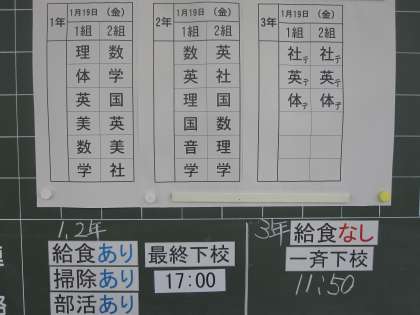 1年 1月19日（金）
1組 2組
理 数
体 学
英 国
美 英
数 美
学 社
2年 1月19日（金）
1組 2組
数 英
英 社
理 国
国 数
音 理
学 学
3年 1月19日（金）
1組 2組
社テ 社テ
英テ 英テ
体テ 体テ
1,2年
給食あり
掃除あり
部活あり
最終下校
17:00
3年 給食なし
一斉下校
11:50